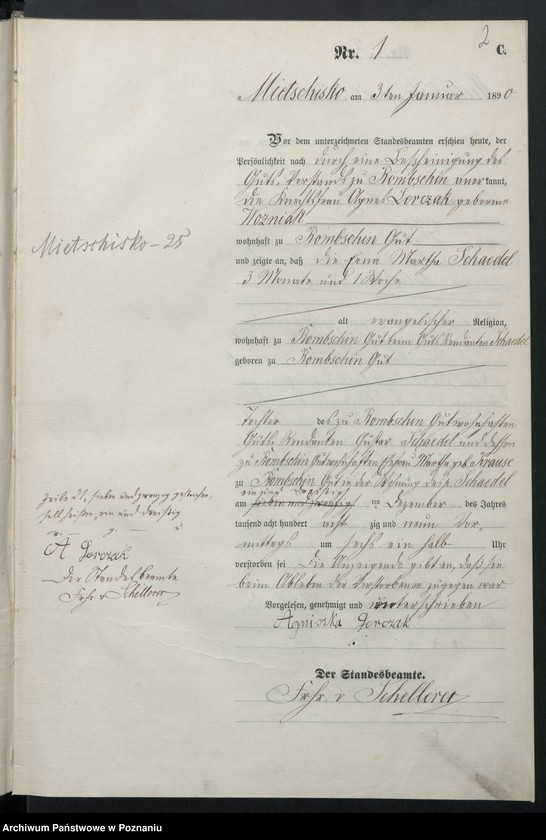 Nr. 1
2
C.
Mietschisko am 3ten Januar 1890
Vor dem unterzeichneten Standesbeamten erschien heute, der
Persönlichkeit nach durch eine Bescheinigung des
Guts-Vorstands zu Rombschin anerkannt,
die Knechtsfrau Agnes Lorczak geborene
Wozniak
wohnhaft zu Rombschin Gut
und zeigte an, daß die Erna Martha Schaedel
3 Monate und 1 Woche
alt evangelischer Religion,
wohnhaft zu Rombschin Gut beim Guts Rendanten Schaedel
geboren zu Rombschin Gut
Tochter des zu Rombschin Gut wohnhaften
Guts Rendanten Gustav Schaedel und dessen
zu Rombschin Gut wohnhaften Ehefrau Martha geb. Krause
zu Rombschin Gut in der Wohnung des p. Schaedel
ein und dreißig
am sieben und zwanzig ten Dezember des Jahres
tausend acht hundert acht zig und neun Vor-
mittags um sechs ein halb Uhr
verstorben sei Die Anzeigende gibt an, daß sie
beim Ableben der Verstorbenen zugegen war
Vorgelesen, genehmigt und unterschrieben
Agniszka Lorczak
Der Standesbeamte.
Frhr. v Schellerer
Mietschisko - 25
Zeile sieben und zwanzig gestrichen,
soll heißen, ein und dreißig
v. g. u
A Lorczak
Der Standesbeamte
Frhr. v Schellerer
Archiwum Państwowe w Poznaniu